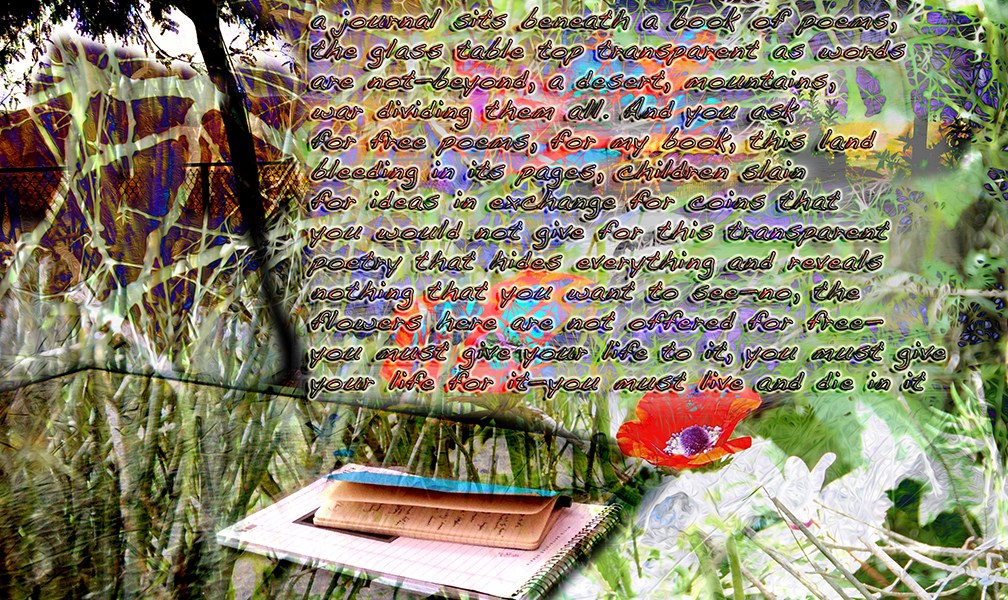 a journal sits beneath a book of poems,
the glass table top transparent as words
are not—beyond, a desert, mountains,
war dividing them all. And you ask
for free poems, for my book, this land
bleeding in its pages, children slain
for ideas in exchange for coins that
you would not give for this transparent
poetry that hides everything and reveals
nothing that you want to see—no, the
flowers here are not offered for free—
you must give your life to it, you must give
your life for it—you must live and die in it